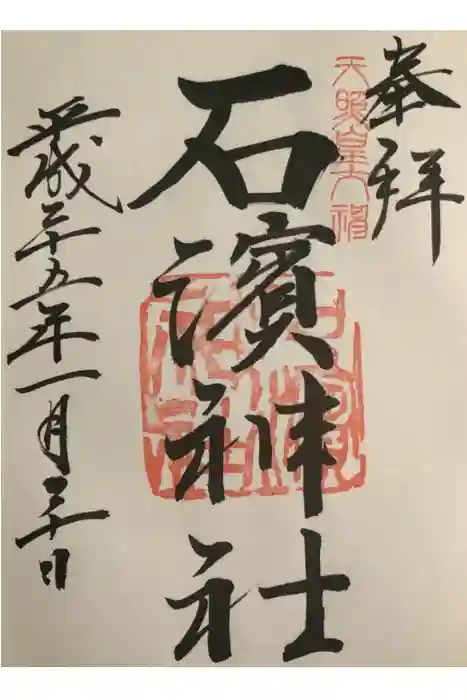 奉拝
天照皇大神
石濱神社
平成二十五年一月二十日